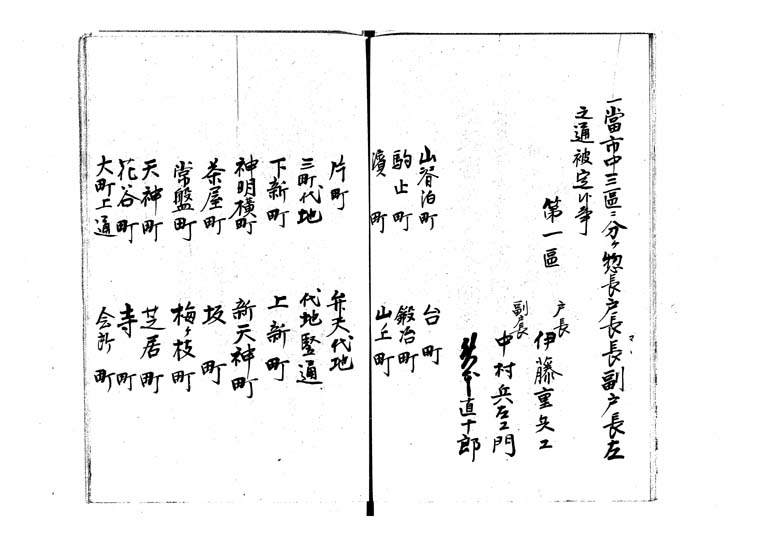 一當市中三區ニ分ケ惣長戸長長副戸長左
之通被定候事
第一區
戸長
伊藤重兵エ
副戸長
中村兵左エ門
直十郎
山脊泊町
台町
駒止町
鍛冶町
濱町
山上町
片町
弁天代地
三町代地
代地竪通
下新町
上新町
神明横町
新天神町
茶屋町
坂町
常盤町
梅ヶ枝町
天神町
芝居町
花谷町
寺町
大町上通
会所町